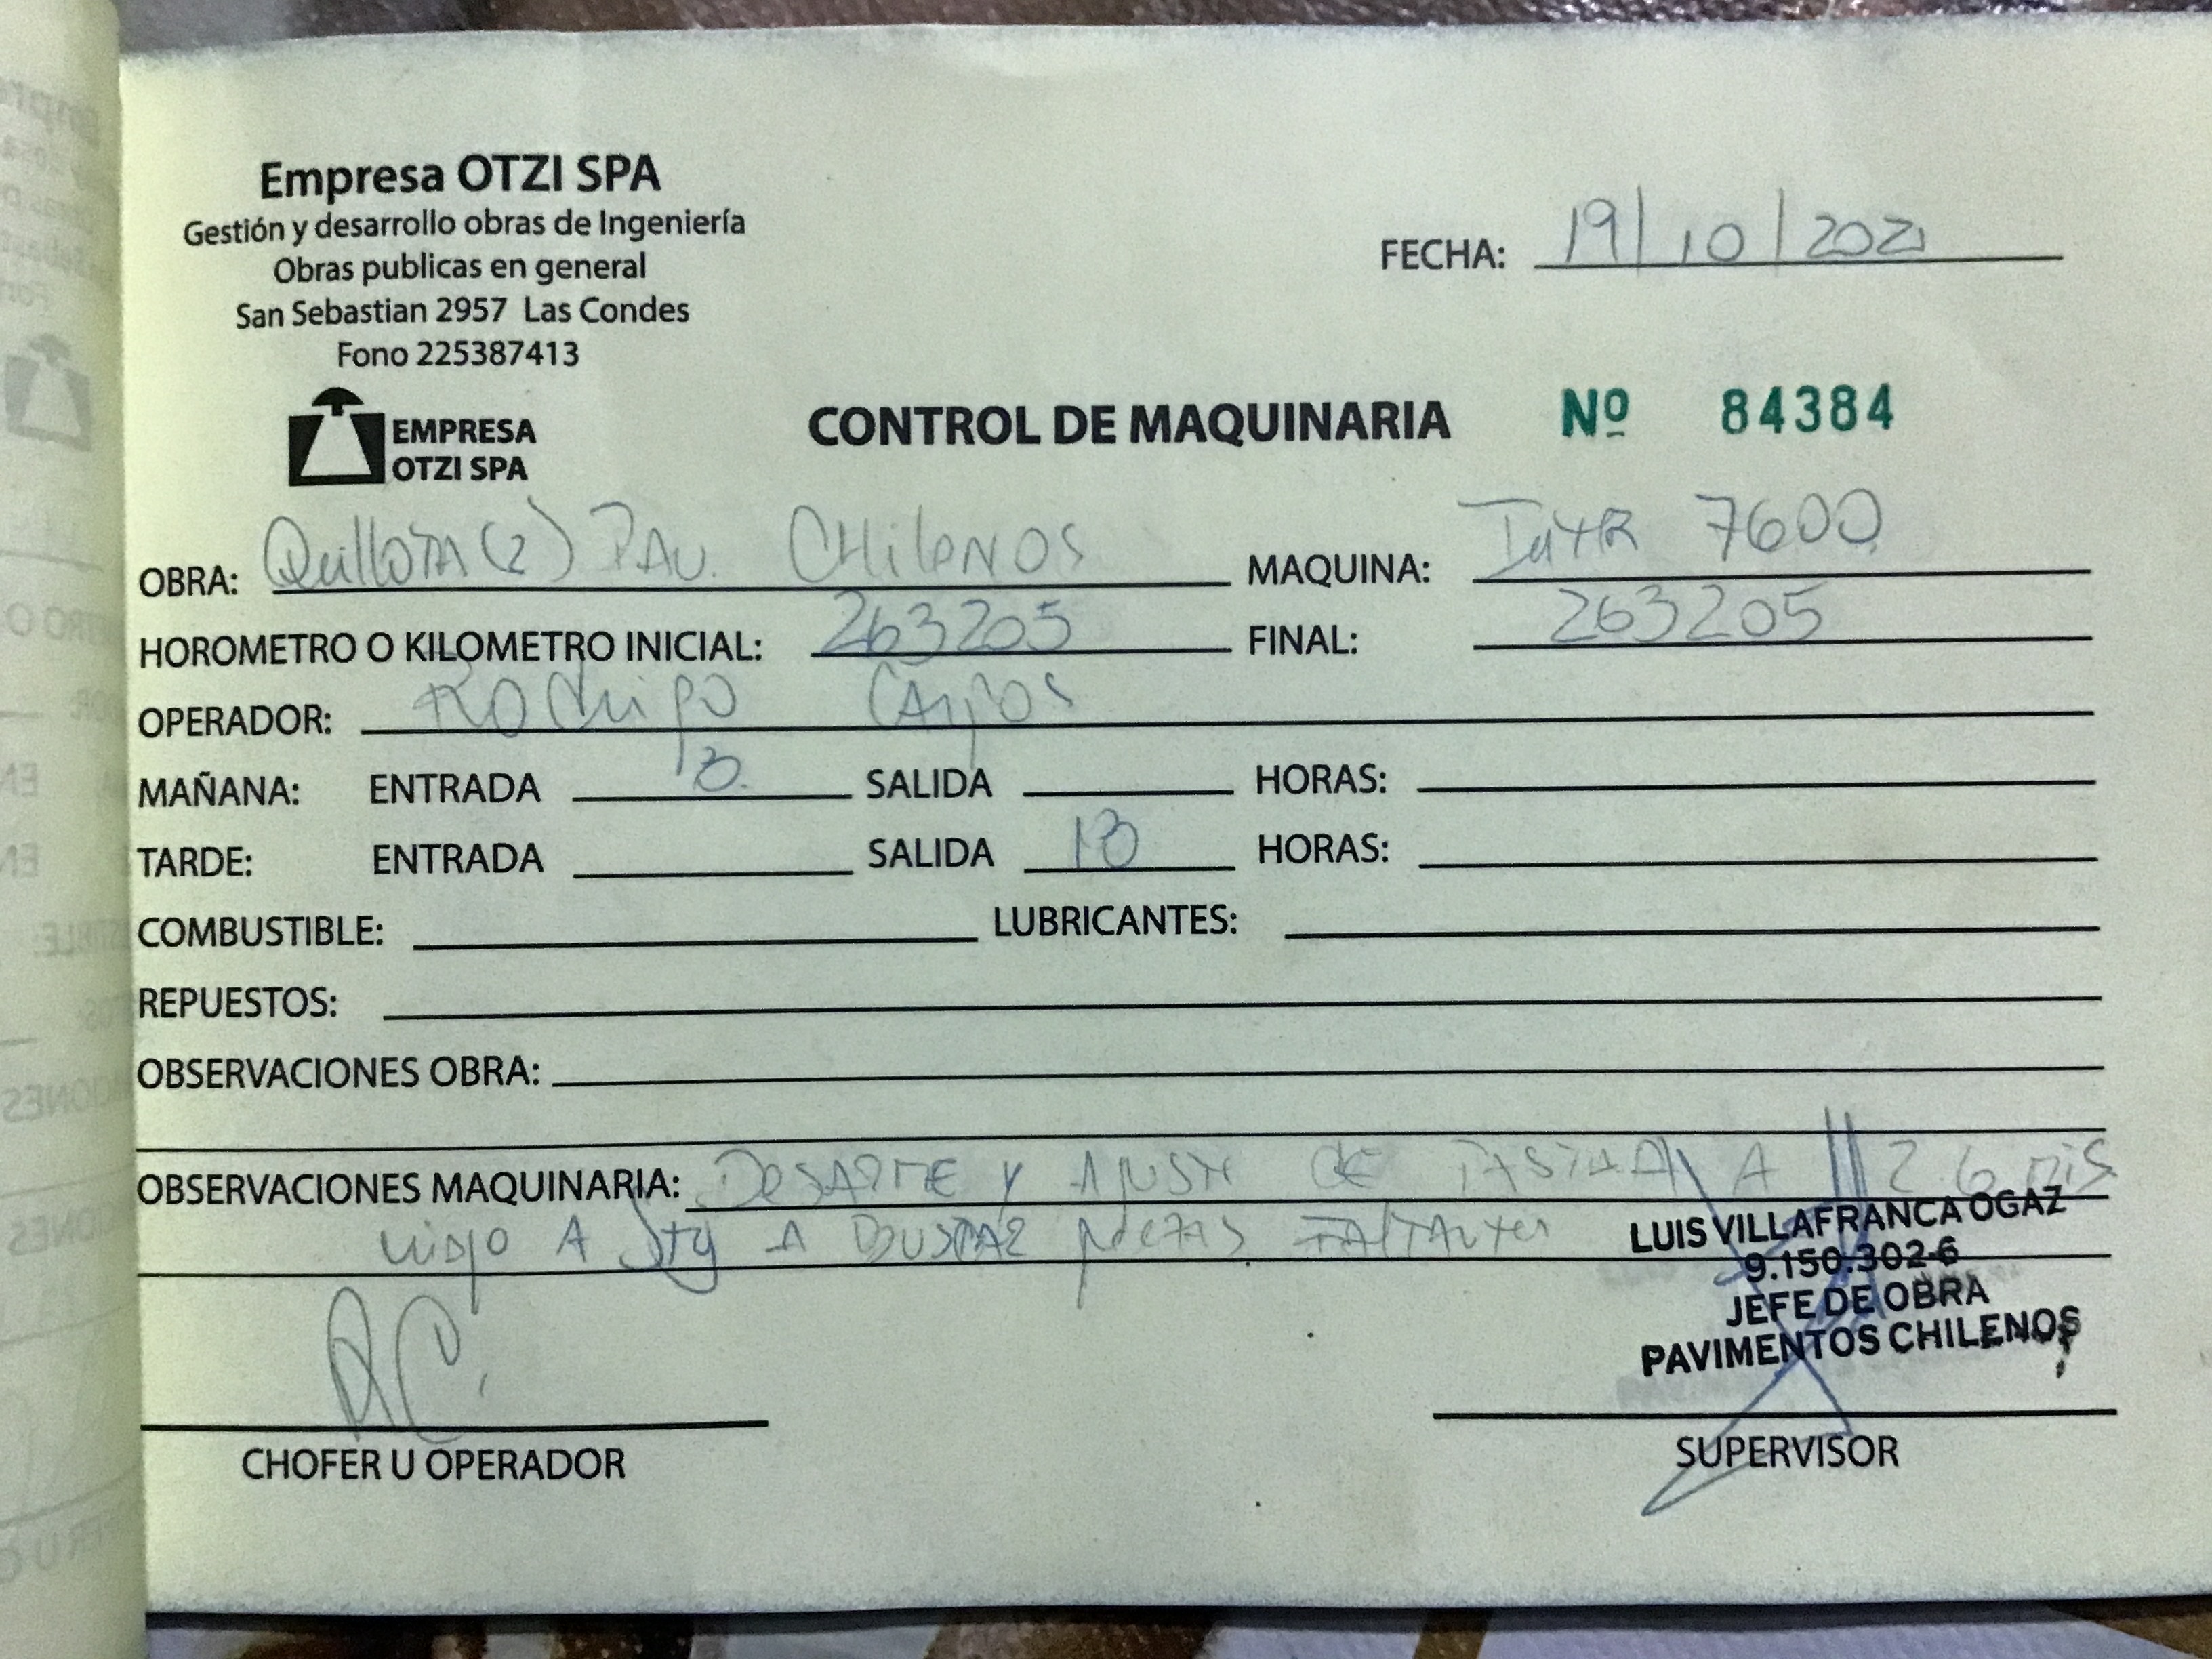 Empresa OTZI SPA
Gestión y desarrollo obras de Ingeniería
Obras publicas en general
San Sebastian 2957 Las Condes
Fono 225387413
FECHA: 19/10/2021
EMPRESA
OTZI SPA
CONTROL DE MAQUINARIA Nº 84384
OBRA: Quillota (2) PAV. CHilENOS MAQUINA: 7600
HOROMETRO O KILOMETRO INICIAL: 263205 FINAL: 263205
OPERADOR: RODrigo CAmpos
MAÑANA: ENTRADA SALIDA HORAS:
TARDE: ENTRADA SALIDA HORAS:
COMBUSTIBLE: LUBRICANTES:
REPUESTOS:
OBSERVACIONES OBRA:
OBSERVACIONES MAQUINARIA: DESARME Y AJUSTE DE A
viajo A A BUSCAR piezas FAlTANtes
LUIS VILLAFRANCA OGAZ
9.150.302-6
JEFE DE OBRA
PAVIMENTOS CHILENOS
CHOFER U OPERADOR
SUPERVISOR